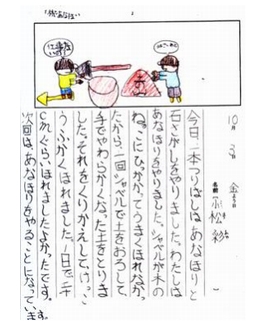 10月3日 金よう日
名前 小松
今日、一本ろっぽしは、あなほりと
石さがしをやりました。わたしは
あなほりをやりました。シャベルが木の
ねっこにひっかかってうまくほれなか
たから、一回シャベルで土をおろして
手でやわらかくなった土をとりま
した。それをくりかえして、けっこ
うふかくほれました。1日で、二十
cmぐらい、ほれました。よかったです。
次回は、あなほりをやることになっていま
す。